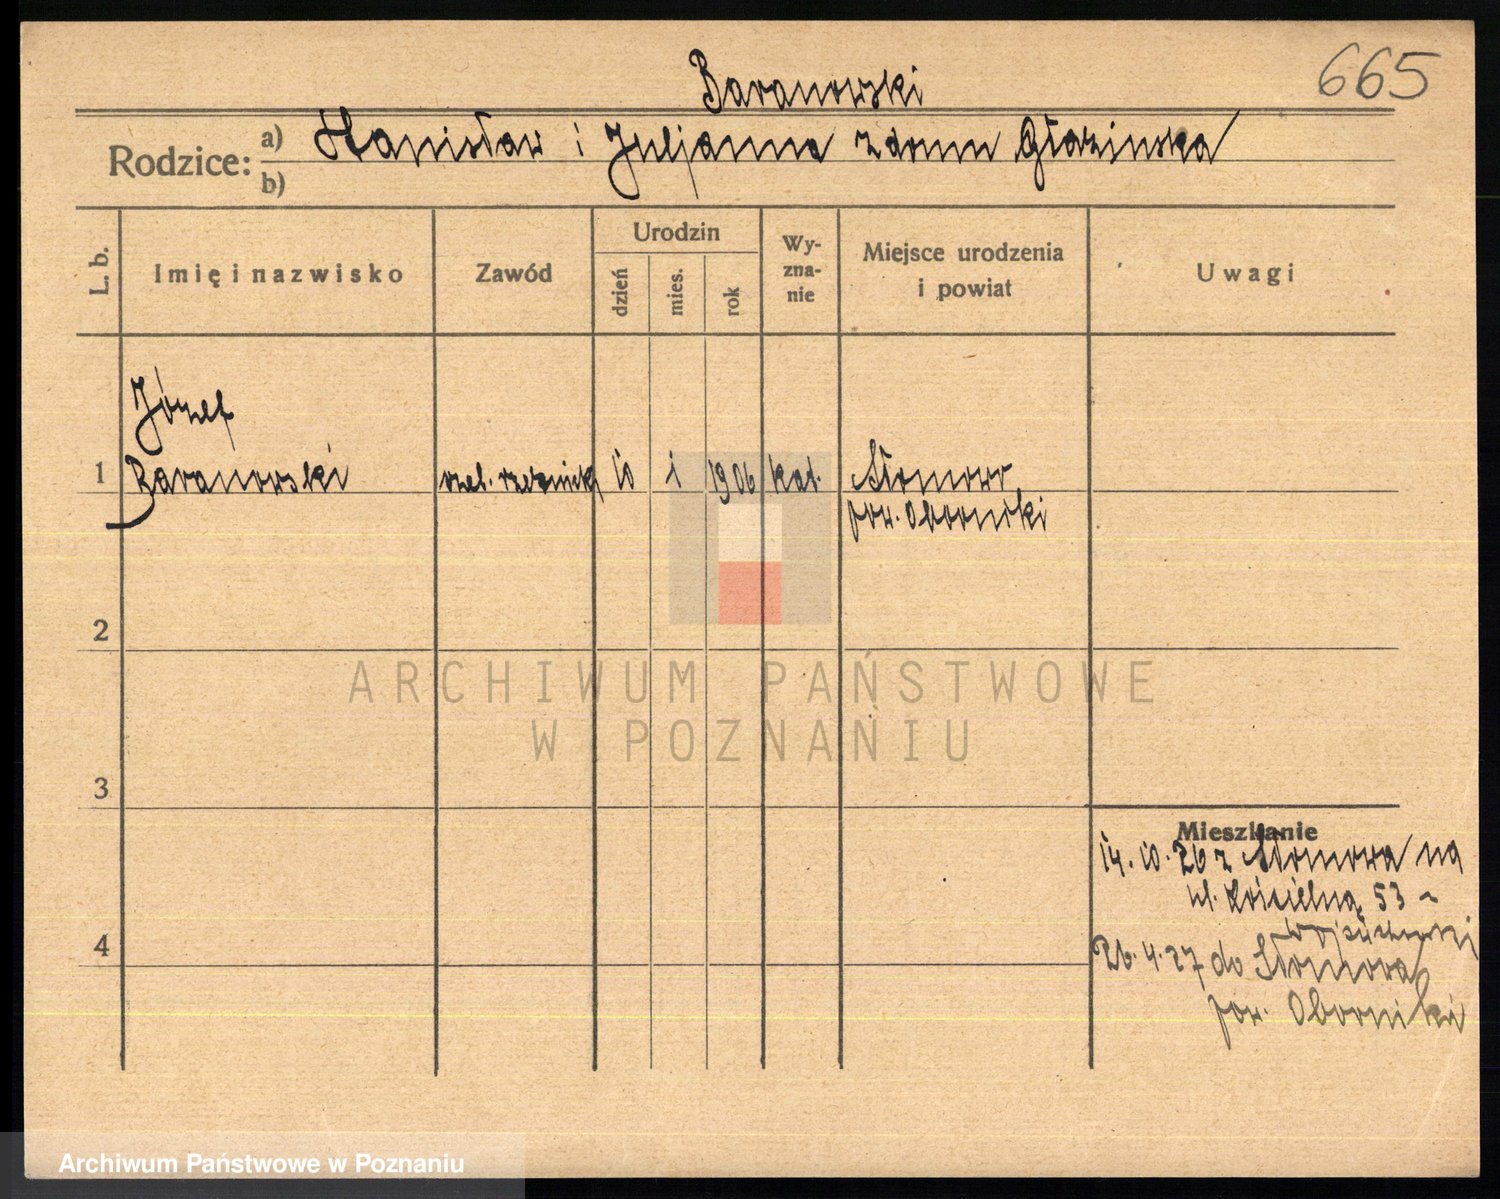 665
Baranowski
Rodzice: a) Stanisław i Juljanna z domu Głazinska
b)
L. b.
Imię i nazwisko
Zawód
Urodzin
dzień
mies.
rok
Wy-
zna-
nie
Miejsce urodzenia
i powiat
Uwagi
Józef
1 Baranowski czel. rzeźnicki 10 1 1906 kat. Słomowo
pow. Obornicki
2
3
4
Mieszkanie
14.10.26 z Słomowa na
ul. Kościelną 53
26.4.27 do Słomowa
pow. Obornicki
ARCHIWUM PAŃSTWOWE
W POZNANIU
Archiwum Państwowe w Poznaniu